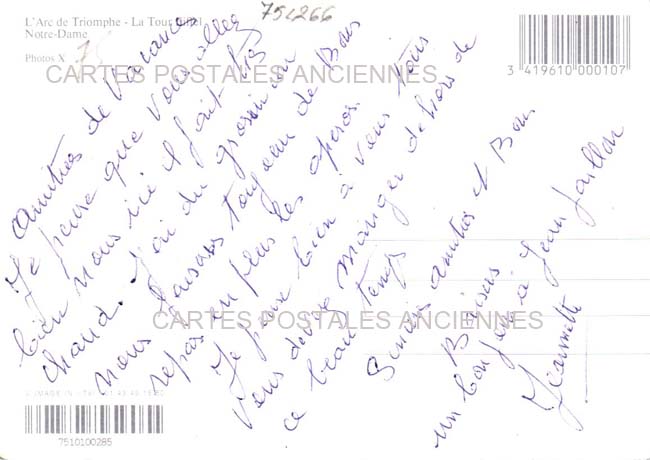 L'Arc de Triomphe - La Tour Eiffel
Notre-Dame
Photos X
754266
3 419610 000107
CARTES POSTALES ANCIENNES
amitiés de Vacances
Je pense que vous allez
bien nous ici il fait très
chaud. J'ai du grossir on
nous faisons toujours de Bons
repas en plus les apéros.
Je pense bien à vous tous
vous devez manger dehors de
ce beau temps
Sincères amitiés et Bons
Baisers
un bonjour à Jean
Jeannette
CARTES POSTALES ANCIENNES
7510100285